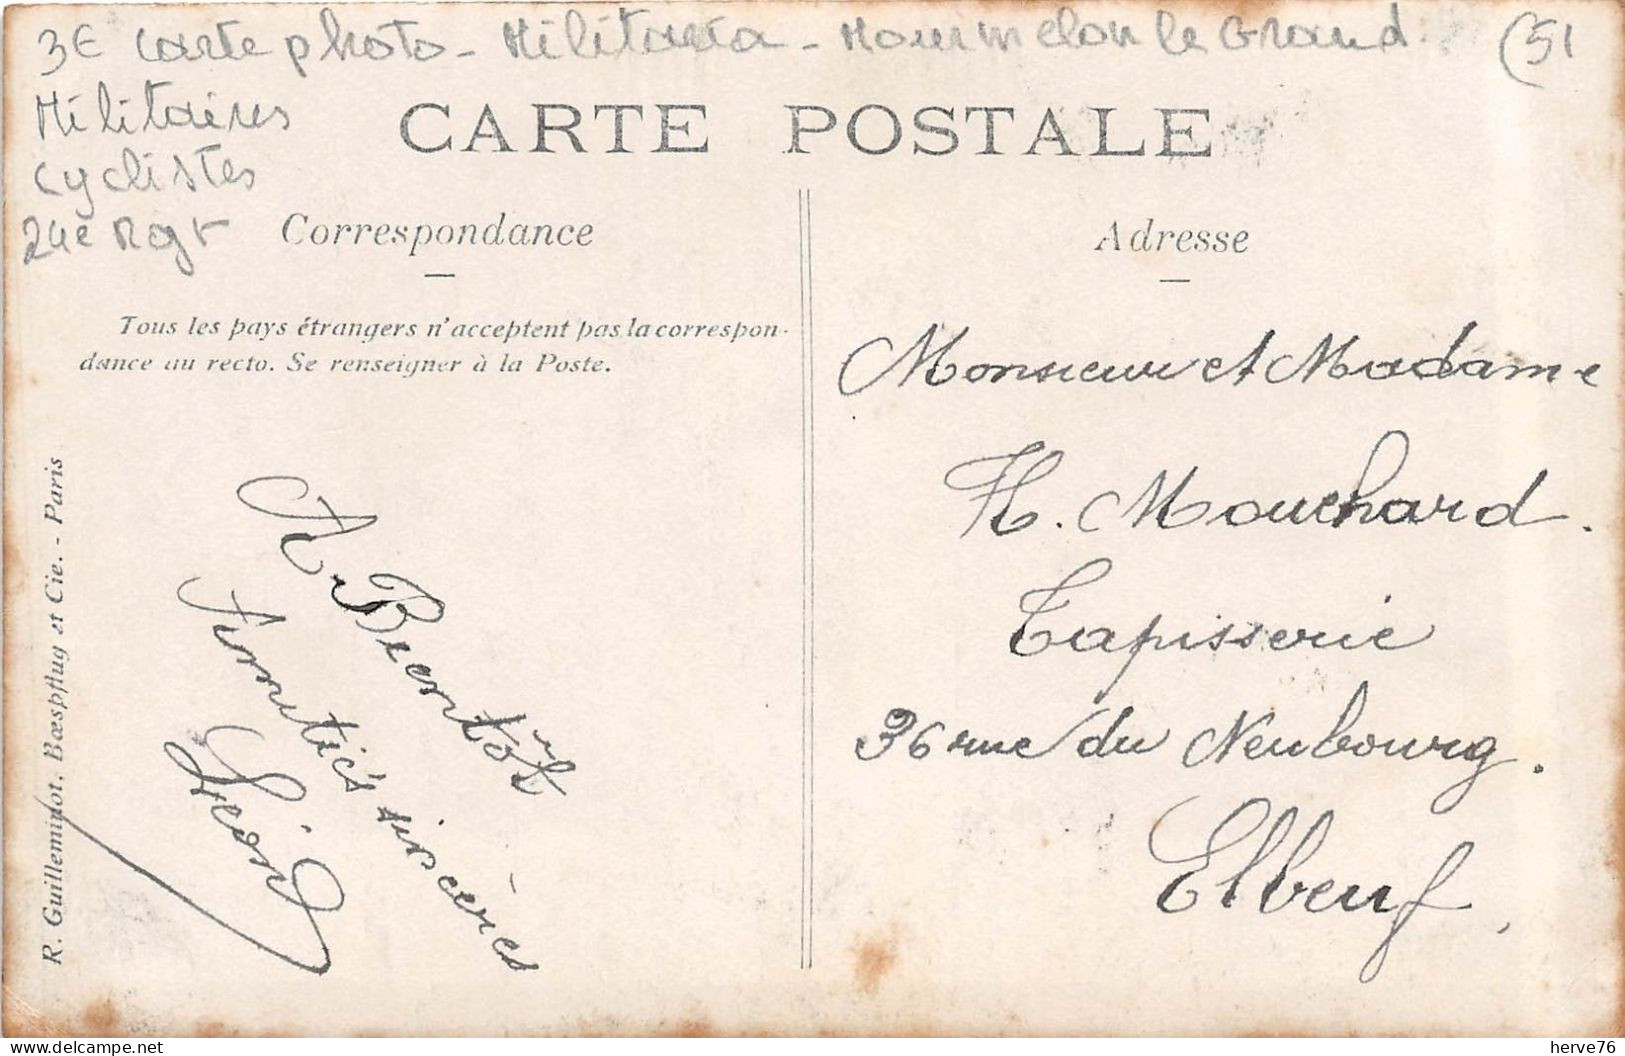 3€ carte photo - Militaria - Mourmelon le Grand (51
Militaires
cyclistes
24e Rgt
CARTE POSTALE
Correspondance
Tous les pays étrangers n'acceptent pas la correspon-
dance au recto. Se renseigner à la Poste.
R. Guilleminot, Bœspflug et Cie. - Paris
A Bientôt
Amitiés sincères
Léon
Adresse
Monsieur et Madame
H. Mouchard.
Tapisserie
36 rue du Neubourg.
Elbeuf.
delcampe.net
herve76